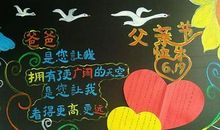 爸爸
是您让我
拥有了更广阔的天空!
是您让我
看得更高更远
父亲节
快乐
6.17